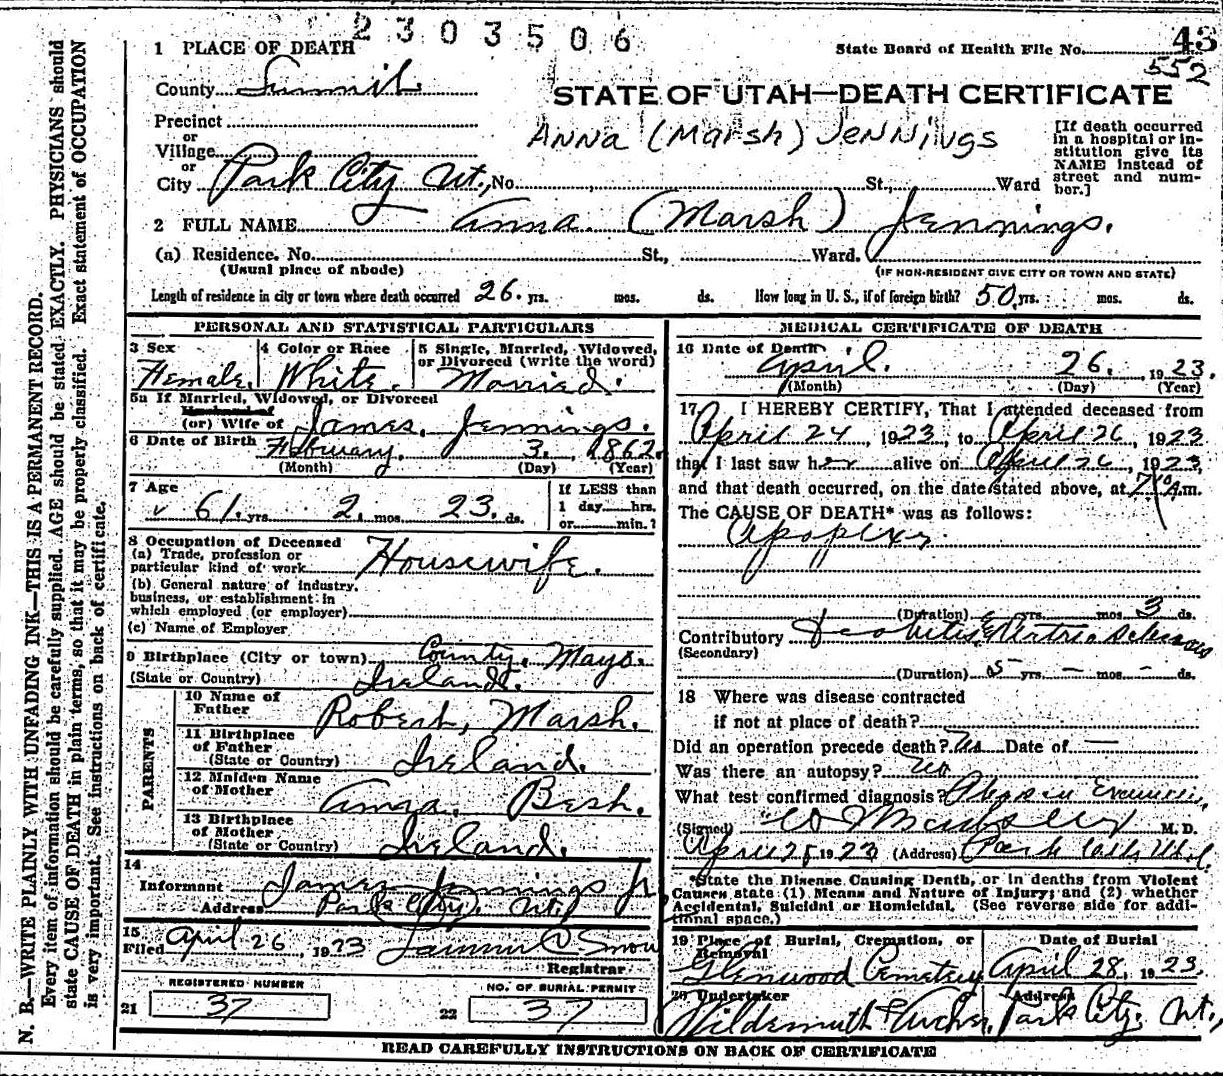 2303506
1 PLACE OF DEATH
State Board of Health File No. 43
552
County Summit
STATE OF UTAH—DEATH CERTIFICATE
Precinct
or
Village
ANNA (MARSH) JENNINGS
[If death occurred in a hospital or institution give its NAME instead of street and number.]
or
City Park City Ut., No. St., Ward
2 FULL NAME Anna (Marsh) Jennings.
(a) Residence. No. St., Ward.
(Usual place of abode) (IF NON-RESIDENT GIVE CITY OR TOWN AND STATE)
Length of residence in city or town where death occurred 26 yrs. mos. ds. How long in U. S., if of foreign birth? 50 yrs. mos. ds.
PERSONAL AND STATISTICAL PARTICULARS
3 Sex 4 Color or Race 5 Single, Married, Widowed,
or Divorced (write the word)
Female. White. Married.
5a If Married, Widowed, or Divorced
Husband of
(or) Wife of James. Jennings.
6 Date of Birth February. 3. 1862.
(Month) (Day) (Year)
7 Age If LESS than
61 yrs. 2 mos. 23 ds. 1 day hrs.
or min.?
8 Occupation of Deceased
(a) Trade, profession or
particular kind of work Housewife.
(b) General nature of industry,
business, or establishment in
which employed (or employer)
(c) Name of Employer
9 Birthplace (City or town) County. Mayo.
(State or Country) Ireland.
PARENTS
10 Name of
Father Robert, Marsh.
11 Birthplace
of Father
(State or Country) Ireland.
12 Maiden Name
of Mother Anna.
13 Birthplace
of Mother
(State or Country) Ireland.
14
Informant James Jennings Jr.
Address Park City, Ut.
15
Filed April 26, 1923 Snow
Registrar
REGISTERED NUMBER NO. OF BURIAL PERMIT
21 37 22 37
MEDICAL CERTIFICATE OF DEATH
16 Date of Death April. 26. 1923.
(Month) (Day) (Year)
17 I HEREBY CERTIFY, That I attended deceased from
April 24, 1923, to April 26, 1923
that I last saw her alive on April 26, 1923,
and that death occurred, on the date stated above, at 7 A.m.
The CAUSE OF DEATH* was as follows:
Apoplexy
(Duration) yrs. mos. 3 ds.
Contributory
(Secondary)
(Duration) 5 yrs. — mos. — ds.
18 Where was disease contracted
if not at place of death?
Did an operation precede death? No Date of —
Was there an autopsy? No
What test confirmed diagnosis?
(Signed) M. D.
April 1923 (Address) Park City, Utah
*State the Disease Causing Death, or in deaths from Violent
Causes state (1) Means and Nature of Injury; and (2) whether
Accidental, Suicidal or Homicidal. (See reverse side for addi-
tional space.)
19 Place of Burial, Cremation, or Date of Burial
Removal
Glenwood Cemetery April 28, 1923.
20 Undertaker Address
Park City, Ut.,
READ CAREFULLY INSTRUCTIONS ON BACK OF CERTIFICATE
N. B.—WRITE PLAINLY WITH UNFADING INK—THIS IS A PERMANENT RECORD.
Every item of information should be carefully supplied. AGE should be stated EXACTLY. PHYSICIANS should
state CAUSE OF DEATH in plain terms, so that it may be properly classified. Exact statement of OCCUPATION
is very important. See instructions on back of certificate.